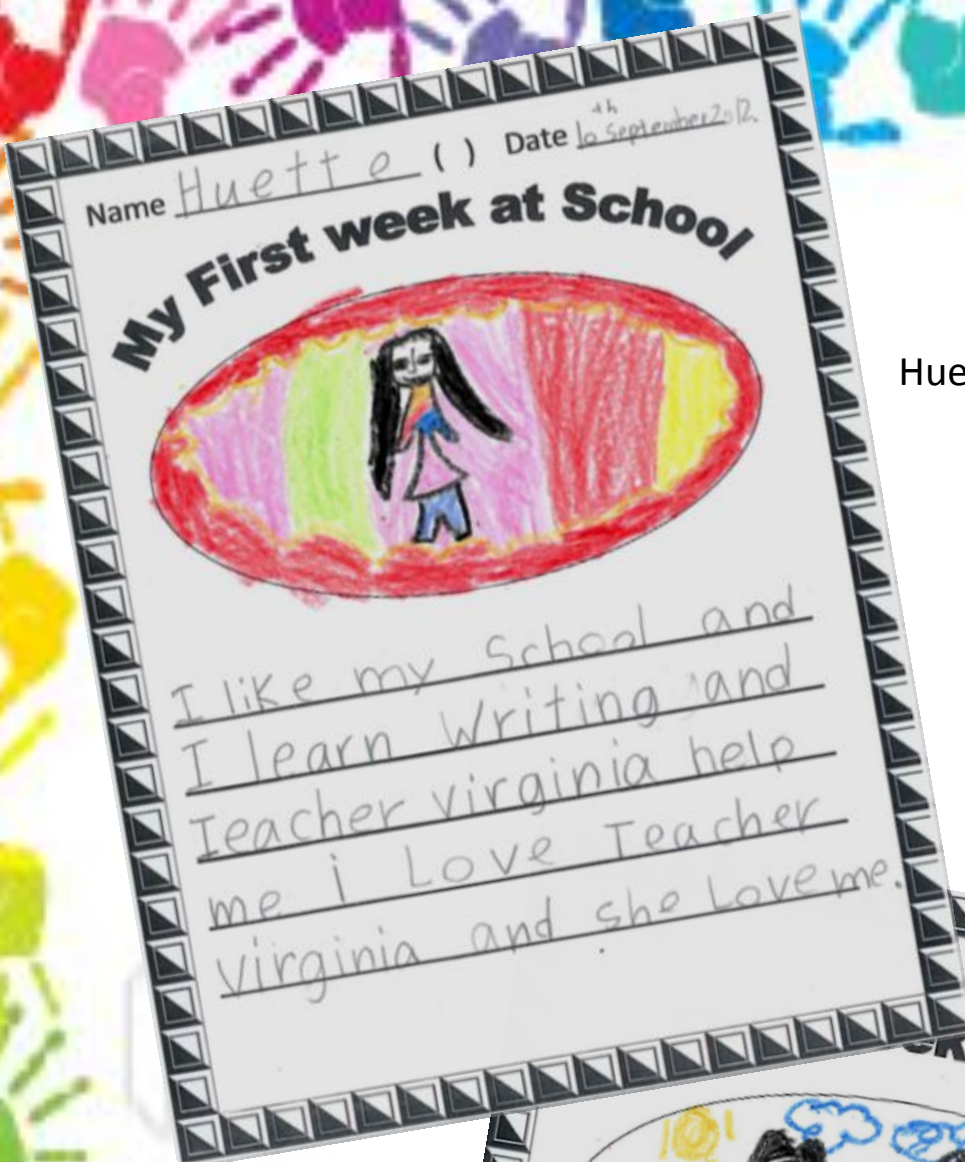 Name Huette ( ) Date 10th September 2012
My First week at School
Hue
I like my School and
I learn Writing and
Teacher virginia help
me i Love Teacher
virginia and she Love me.